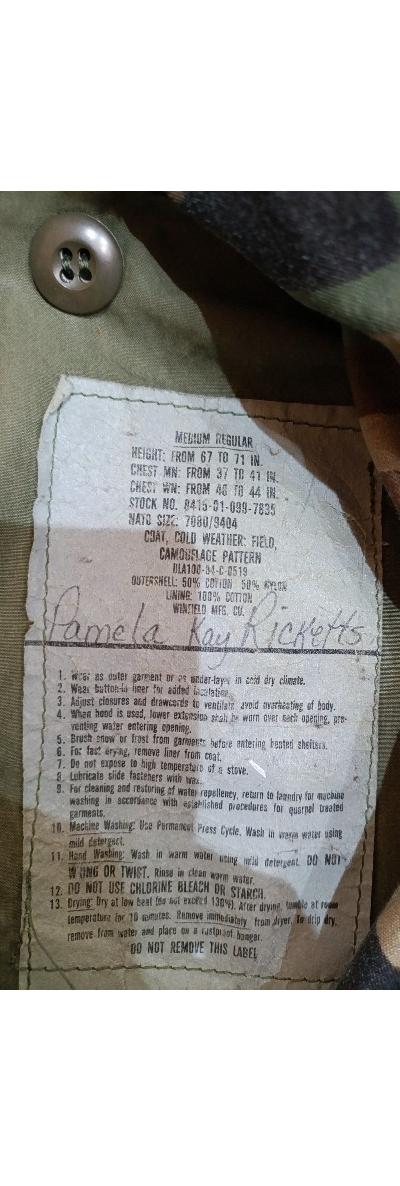 MEDIUM REGULAR
HEIGHT: FROM 67 TO 71 IN.
CHEST MN: FROM 37 TO 41 IN.
CHEST WN: FROM 40 TO 44 IN.
STOCK NO. 8415-01-099-7835
NATO SIZE: 7080/9404
COAT, COLD WEATHER: FIELD,
CAMOUFLAGE PATTERN
DLA100-84-C-0519
OUTERSHELL: 50% COTTON 50% NYLON
LINING: 100% COTTON
WINFIELD MFG. CO.
Pamela Kay Ricketts
1. Wear as outer garment or as under-layer in cold dry climate.
2. Wear button-in liner for added insulation.
3. Adjust closures and drawcords to ventilate avoid overheating of body.
4. When hood is used, lower extension shall be worn over neck opening, pre-
venting water entering opening.
5. Brush snow or frost from garments before entering heated shelters.
6. For fast drying, remove liner from coat.
7. Do not expose to high temperature of a stove.
8. Lubricate slide fasteners with wax.
9. For cleaning and restoring of water repellency, return to laundry for machine
washing in accordance with established procedures for quarpel treated
garments.
10. Machine Washing: Use Permanent Press Cycle. Wash in warm water using
mild detergent.
11. Hand Washing: Wash in warm water using mild detergent. DO NOT
WRING OR TWIST. Rinse in clean warm water.
12. DO NOT USE CHLORINE BLEACH OR STARCH.
13. Drying: Dry at low heat (do not exceed 130°). After drying, tumble at room
temperature for 10 minutes. Remove immediately from dryer. To drip dry,
remove from water and place on a rustproof hanger.
DO NOT REMOVE THIS LABEL